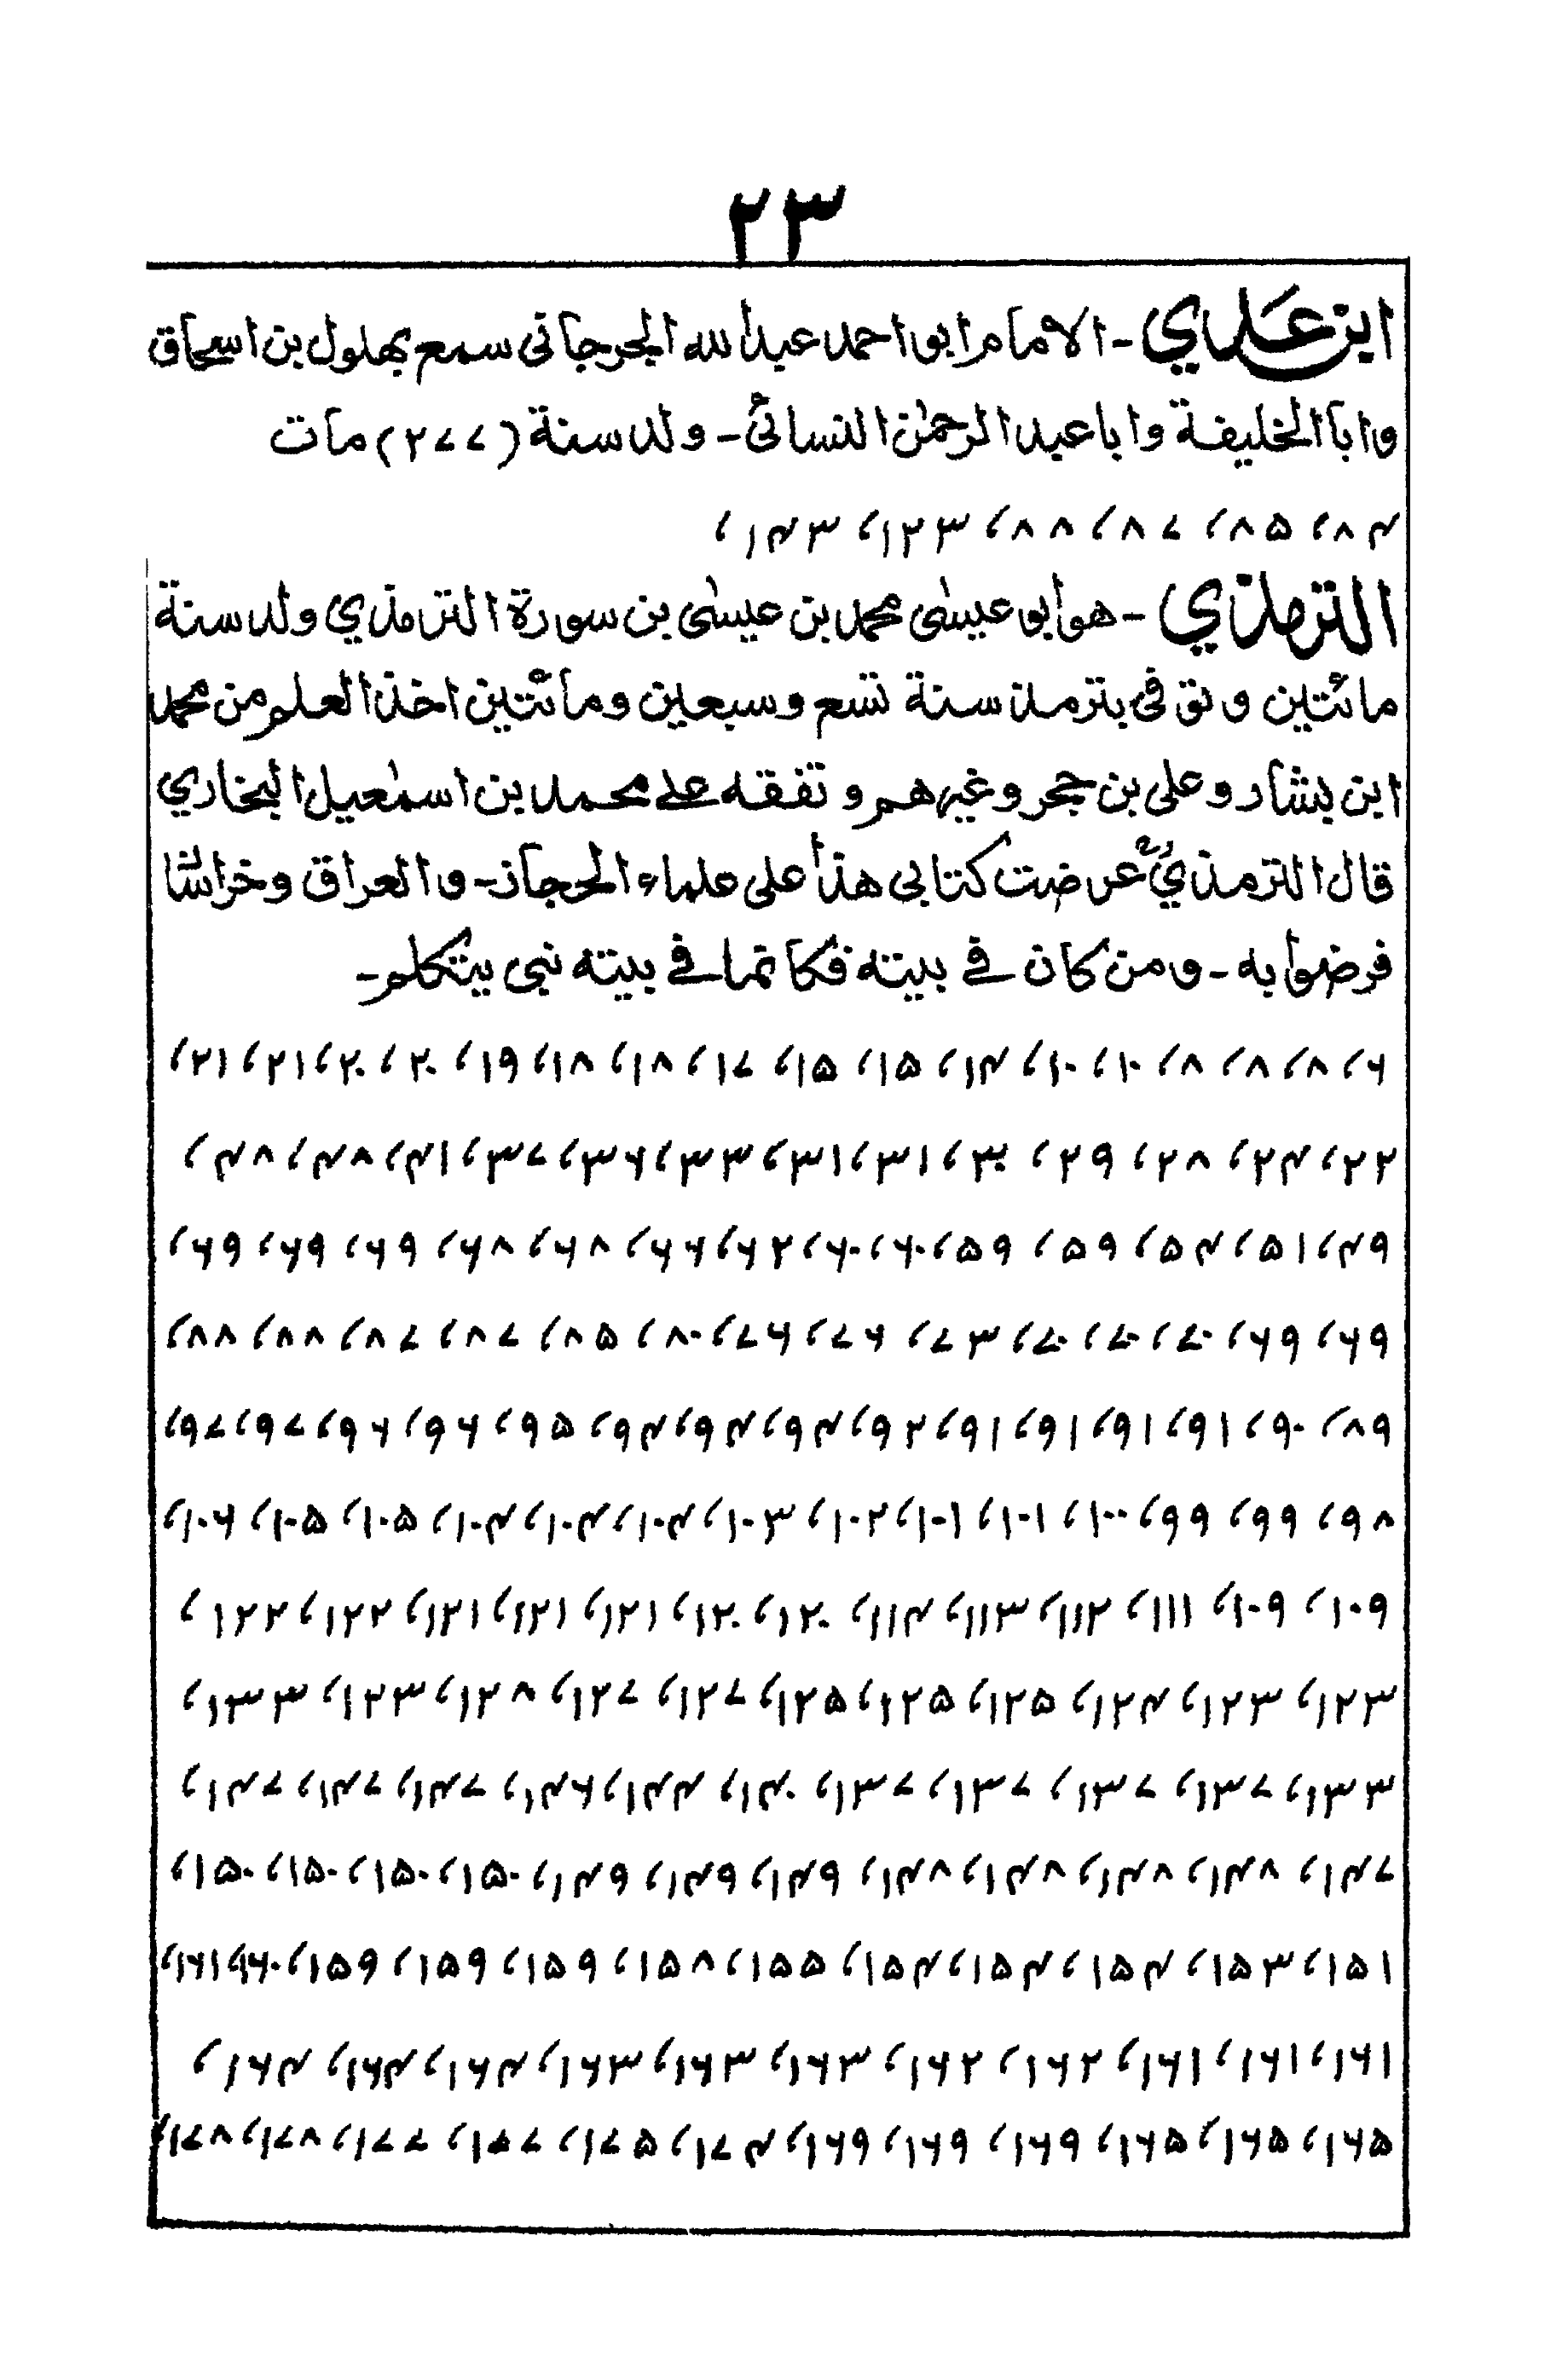 ۲۳
ابن عدي - الامام ابو احمد عبد الله الجرجانی سمع بهلول بن اسحاق
وابا الخليفة وابا عبد الرحمٰن النسائیؒ - ولد سنة (۲۷۷) مات
۸۴، ۸۵، ۸۷، ۸۸، ۱۲۳، ۱۴۳،
الترمذي - هو ابو عيسٰی محمد بن عيسٰی بن سورة الترمذي ولد سنة
مائتين وتوفی بترمذ سنة تسع وسبعين ومائتين اخذ العلم من محمد
ابن بشار وعلی بن حجر وغيرهم وتفقه علے محمد بن اسمٰعيل البخاري
قال الترمذيؒ عرضت كتابی هذا علی علماء الحجاز - والعراق وخراسان
فرضوا به - ومن كان فے بيته فكانما فے بيته نبی يتكلم -
۶، ۸، ۸، ۸، ۱۰، ۱۰، ۱۴، ۱۵، ۱۵، ۱۷، ۱۸، ۱۸، ۱۹، ۲۰، ۲۰، ۲۱، ۲۱،
۲۲، ۲۴، ۲۸، ۲۹، ۳۰، ۳۱، ۳۱، ۳۳، ۳۶، ۳۷، ۴۱، ۴۸، ۴۸،
۴۹، ۵۱، ۵۴، ۵۹، ۵۹، ۶۰، ۶۰، ۶۲، ۶۶، ۶۸، ۶۸، ۶۹، ۶۹، ۶۹،
۶۹، ۶۹، ۷۰، ۷۰، ۷۰، ۷۳، ۷۶، ۷۶، ۸۰، ۸۵، ۸۷، ۸۷، ۸۸، ۸۸،
۸۹، ۹۰، ۹۱، ۹۱، ۹۱، ۹۱، ۹۲، ۹۴، ۹۴، ۹۴، ۹۵، ۹۶، ۹۶، ۹۷، ۹۷،
۹۸، ۹۹، ۹۹، ۱۰۰، ۱۰۱، ۱۰۱، ۱۰۲، ۱۰۳، ۱۰۴، ۱۰۴، ۱۰۴، ۱۰۵، ۱۰۵، ۱۰۶،
۱۰۹، ۱۰۹، ۱۱۱، ۱۱۲، ۱۱۳، ۱۱۴، ۱۲۰، ۱۲۰، ۱۲۱، ۱۲۱، ۱۲۱، ۱۲۲، ۱۲۲،
۱۲۳، ۱۲۳، ۱۲۴، ۱۲۵، ۱۲۵، ۱۲۵، ۱۲۷، ۱۲۷، ۱۲۸، ۱۲۳، ۱۳۳،
۱۳۳، ۱۳۷، ۱۳۷، ۱۳۷، ۱۳۷، ۱۴۰، ۱۴۴، ۱۴۶، ۱۴۷، ۱۴۷، ۱۴۷،
۱۴۷، ۱۴۸، ۱۴۸، ۱۴۸، ۱۴۸، ۱۴۹، ۱۴۹، ۱۴۹، ۱۵۰، ۱۵۰، ۱۵۰، ۱۵۰،
۱۵۱، ۱۵۳، ۱۵۴، ۱۵۴، ۱۵۴، ۱۵۵، ۱۵۸، ۱۵۹، ۱۵۹، ۱۵۹، ۱۶۰، ۱۶۱،
۱۶۱، ۱۶۱، ۱۶۱، ۱۶۲، ۱۶۲، ۱۶۳، ۱۶۳، ۱۶۳، ۱۶۴، ۱۶۴، ۱۶۴،
۱۶۵، ۱۶۵، ۱۶۵، ۱۶۹، ۱۶۹، ۱۶۹، ۱۷۴، ۱۷۵، ۱۷۷، ۱۷۷، ۱۷۸، ۱۷۸،